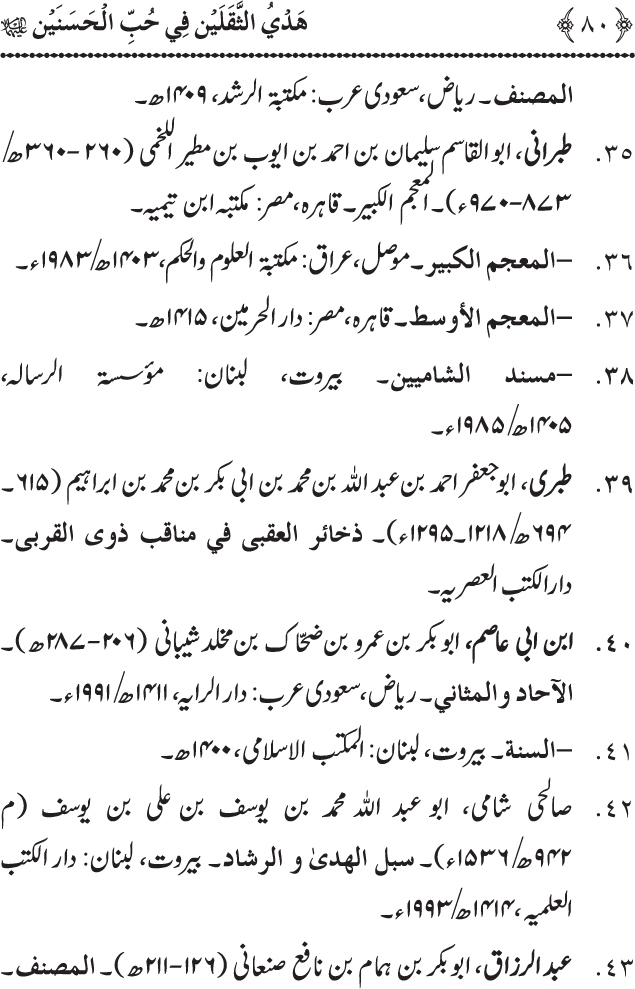 ﴿٨٠﴾ هَدْيُ الثَّقَلَيْن فِي حُبِّ الْحَسَنَيْن
المصنف۔ ریاض، سعودی عرب: مکتبۃ الرشد، ۱۴۰۹ھ۔
۳۵. طبرانی، ابو القاسم سلیمان بن احمد بن ایوب بن مطیر اللخمی (۲۶۰-۳۶۰ھ/
۸۷۳-۹۷۰ء)۔ المعجم الکبیر۔ قاہرہ، مصر: مکتبہ ابن تیمیہ۔
۳۶. –المعجم الكبير۔ موصل، عراق: مکتبۃ العلوم والحکم، ۱۴۰۳ھ/۱۹۸۳ء۔
۳۷. –المعجم الأوسط۔ قاہرہ، مصر: دار الحرمین، ۱۴۱۵ھ۔
۳۸. –مسند الشاميين۔ بیروت، لبنان: مؤسسۃ الرسالہ،
۱۴۰۵ھ/۱۹۸۵ء۔
۳۹. طبری، ابو جعفر احمد بن عبد اللہ بن محمد بن ابی بکر بن محمد بن ابراہیم (۶۱۵۔
۶۹۴ھ/۱۲۱۸۔۱۲۹۵ء)۔ ذخائر العقبى في مناقب ذوى القربى۔
دارالکتب العصریہ۔
۴۰. ابن ابی عاصم، ابو بکر بن عمرو بن ضحّاک بن مخلد شیبانی (۲۰۶-۲۸۷ھ)۔
الآحاد و المثاني۔ ریاض، سعودی عرب: دار الرایہ، ۱۴۱۱ھ/۱۹۹۱ء۔
۴۱. –السنة۔ بیروت، لبنان: المکتب الاسلامی، ۱۴۰۰ھ۔
۴۲. صالحی شامی، ابو عبد اللہ محمد بن یوسف بن علی بن یوسف (م
۹۴۲ھ/۱۵۳۶ء)۔ سبل الهدىٰ و الرشاد۔ بیروت، لبنان: دار الکتب
العلمیہ، ۱۴۱۴ھ/۱۹۹۳ء۔
۴۳. عبد الرزاق، ابو بکر بن ہمام بن نافع صنعانی (۱۲۶-۲۱۱ھ)۔ المصنف۔